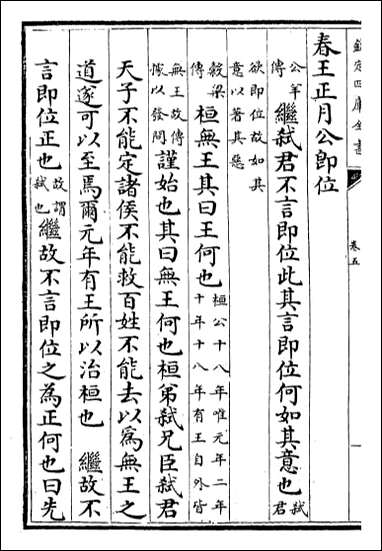 欽定四庫全書 卷五 一
春王正月公即位
公羊傳 繼弑君不言即位此其言即位何如其意也 弑君
欲即位故如其意以著其惡
榖梁傳 桓無王其曰王何也 桓公十八年唯元年二年十年十八年有王自外皆
無王故傳㨿以發問 謹始也其曰無王何也桓弟弑兄臣弑君
天子不能定諸侯不能救百姓不能去以為無王之
道遂可以至焉爾元年有王所以治桓也 繼故不
言即位正也 故謂弑也 繼故不言即位之為正何也曰先